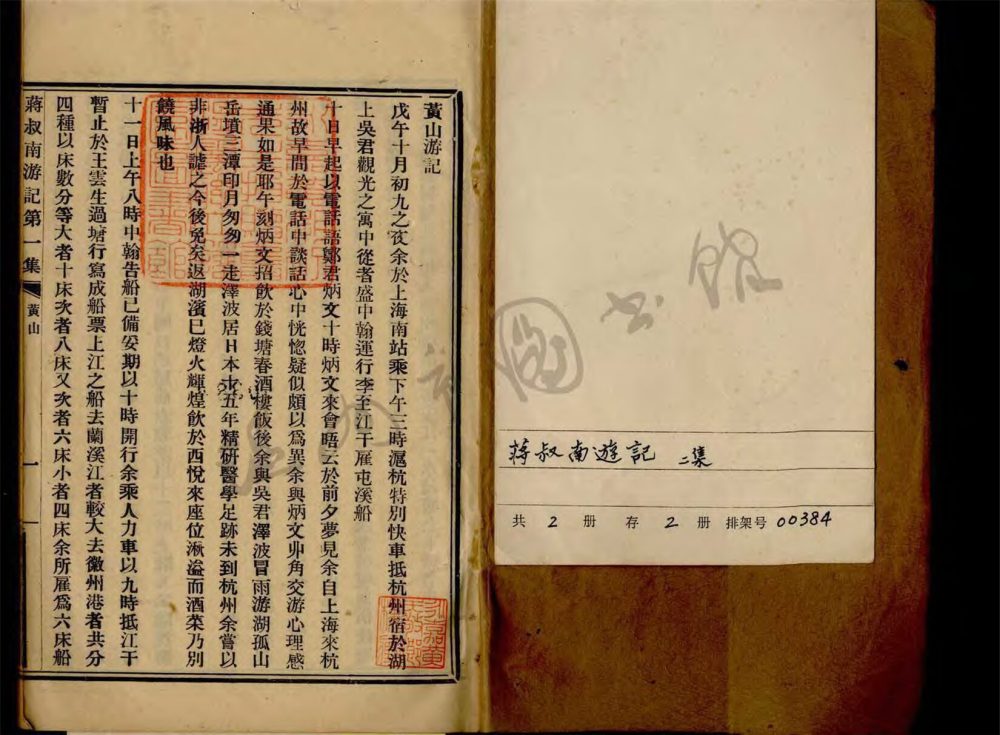 黃山游記
戊午十月初九之夜余於上海南站乘下午三時滬杭特別快車抵杭州宿於湖
上吳君觀光之寓中從者盛中翰運行李至江干雇屯溪船
十日早起以電話語鄭君炳文十時炳文來會晤云於前夕夢見余自上海來杭
州故早間於電話中談話心中恍惚疑似頗以爲異余與炳文丱角交游心理感
通果如是耶午刻炳文招飲於錢塘春酒樓飯後余與吳君澤波冒雨游湖孤山
岳墳三潭印月匆匆一走澤波居日本十五年精研醫學足跡未到杭州余嘗以
非浙人謔之今後免矣返湖濱巳燈火輝煌飲於西悅來座位湫溢而酒菜乃別
饒風味也
十一日上午八時中翰告船已備妥期以十時開行余乘人力車以九時抵江干
暫止於王雲生過塘行寫成船票上江之船去蘭溪江者較大去徽州港者共分
四種以床數分等大者十床次者八床又次者六床小者四床余所雇爲六床船
蔣叔南游記第一集
黃山
一
蔣叔南遊記 二集
共 2 册 存 2 册 排架号 00384